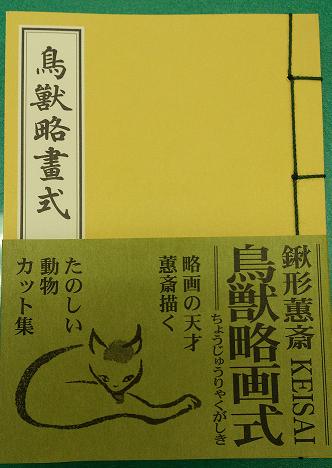 鳥獣略畫式
鍬形蕙斎 KEISAI
鳥獣略画式
ちょうじゅうりゃくがしき
略画の天才
蕙斎描く
たのしい
動物
カット集